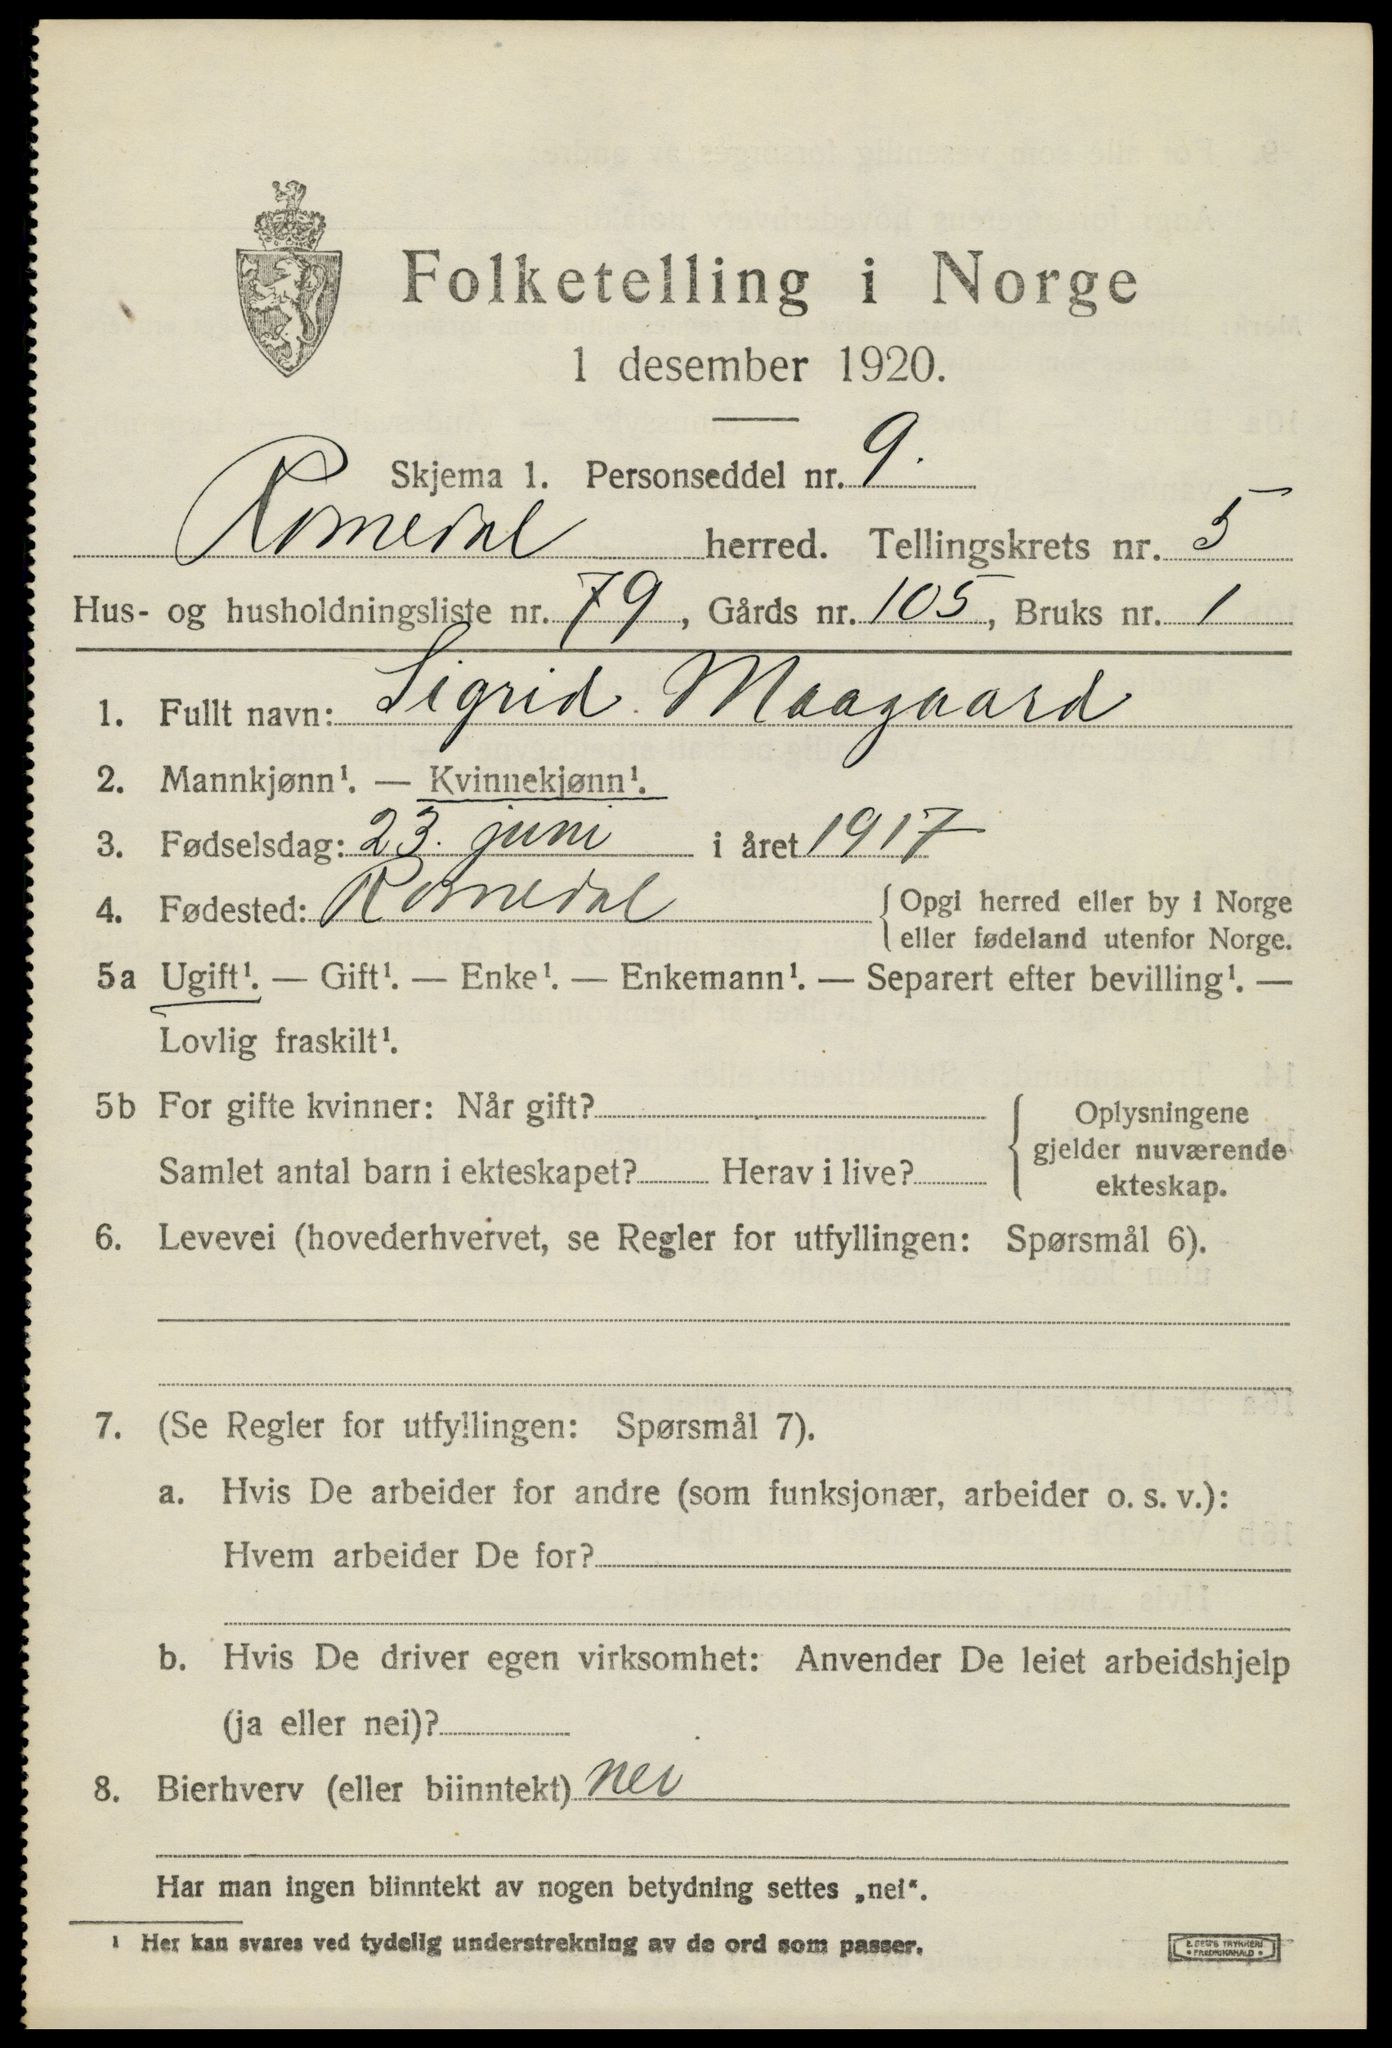 Folketelling i Norge
1 desember 1920.
Skjema 1. Personseddel nr. 9.
Romedal herred. Tellingskrets nr. 5
Hus- og husholdningsliste nr. 79, Gårds nr. 105, Bruks nr. 1
1. Fullt navn: Sigrid Maagaard
2. Mannkjønn¹. — Kvinnekjønn¹.
3. Fødselsdag: 23. juni i året 1917
4. Fødested: Romedal {Opgi herred eller by i Norge
eller fødeland utenfor Norge.
5a Ugift¹. — Gift¹. — Enke¹. — Enkemann¹. — Separert efter bevilling¹. —
Lovlig fraskilt¹.
5b For gifte kvinner: Når gift?
Samlet antal barn i ekteskapet? Herav i live?
{Oplysningene
gjelder nuværende
ekteskap.
6. Levevei (hovederhvervet, se Regler for utfyllingen: Spørsmål 6).
7. (Se Regler for utfyllingen: Spørsmål 7).
a. Hvis De arbeider for andre (som funksjonær, arbeider o. s. v.):
Hvem arbeider De for?
b. Hvis De driver egen virksomhet: Anvender De leiet arbeidshjelp
(ja eller nei)?
8. Bierhverv (eller biinntekt) nei
Har man ingen biinntekt av nogen betydning settes „nei“.
¹ Her kan svares ved tydelig understrekning av de ord som passer.
E. SEMS TRYKKERI
• FREDRIKSHALD •